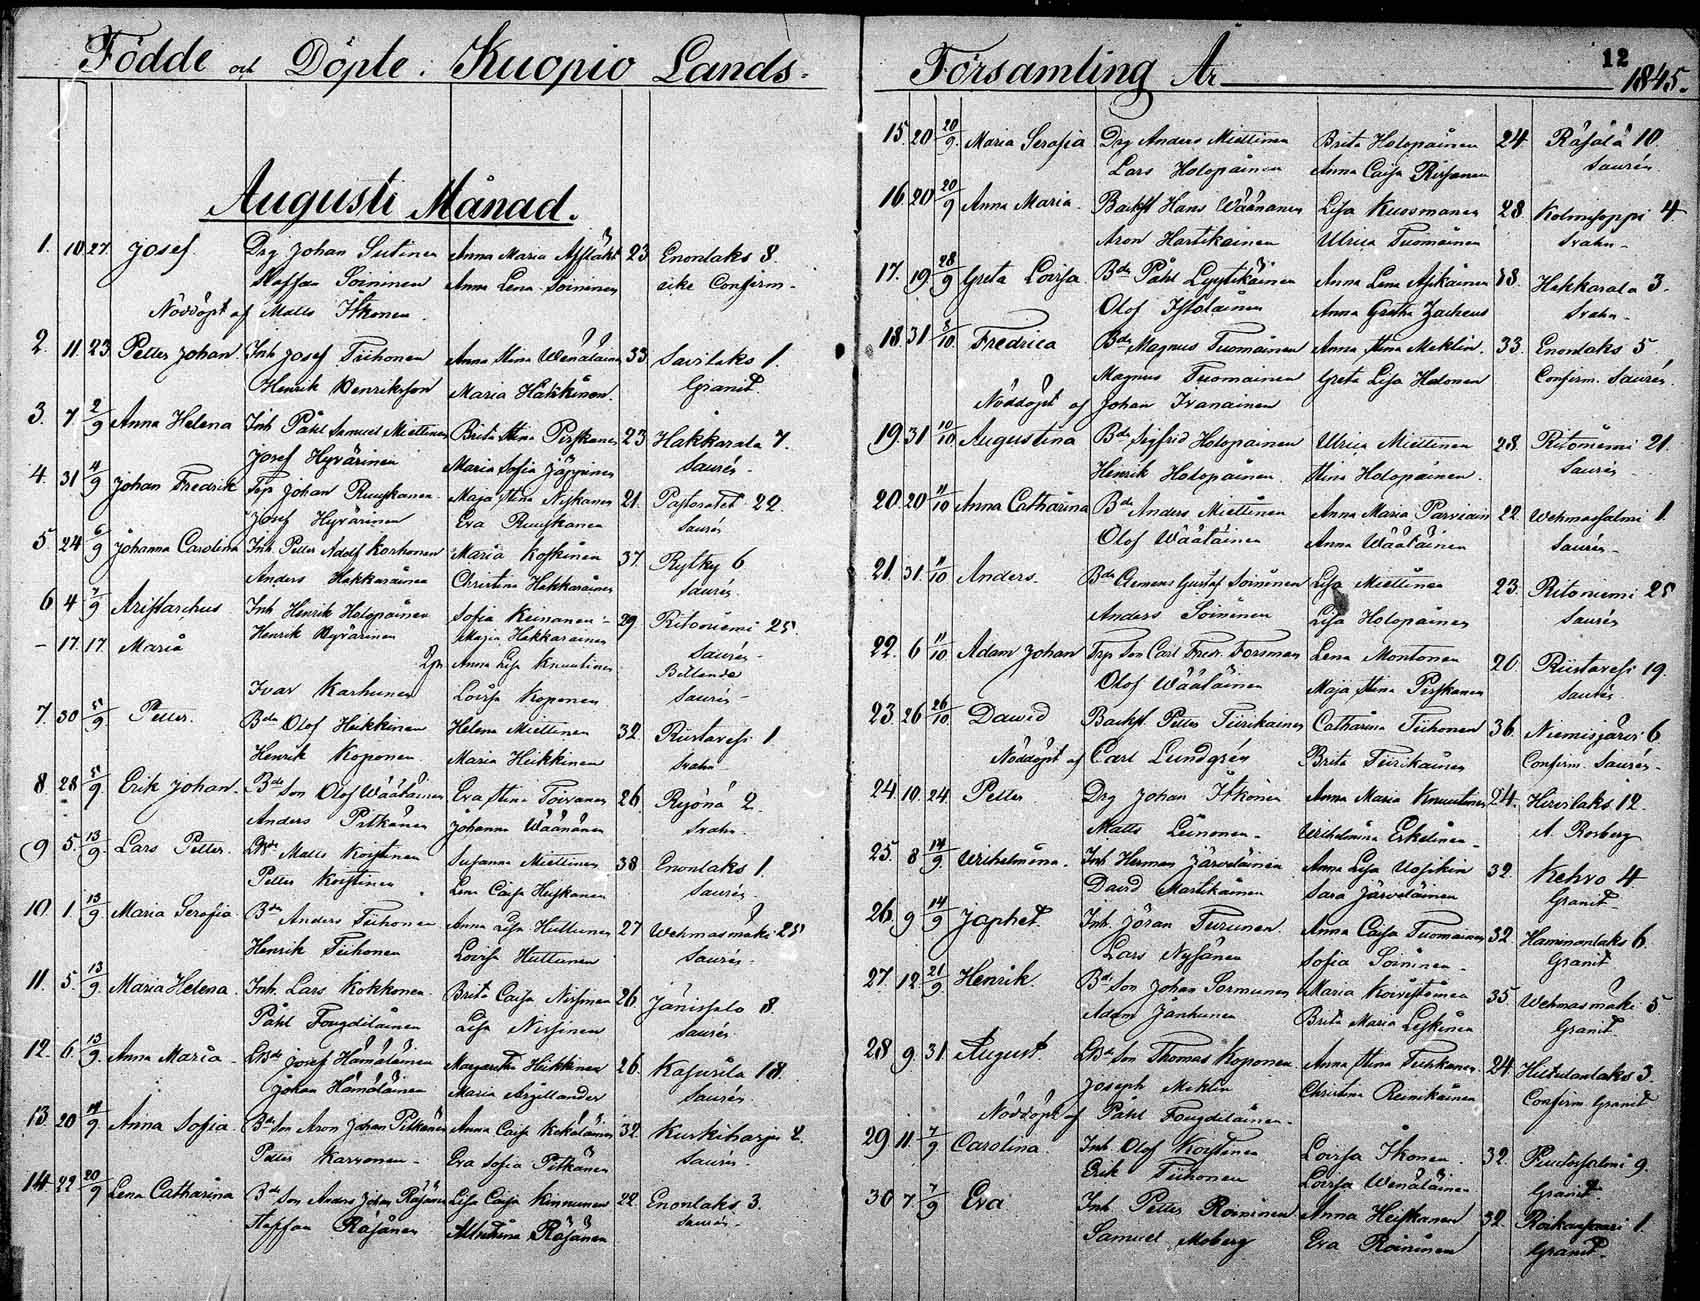 Födde och Döpte. Kuopio Lands-
Augusti Månad.
1. 10 27 Josef Drg Johan Sutinen Anna Maria 23 Enonlaks 8.
Staffan Soininen Anna Lena Soininen eike Confirm-
Nöddöpt af Matts Itkonen
2. 11. 23 Petter Johan. Inh Josef Tiihonen Anna Stina Wenäläinen 33 Savilaks 1.
Henrik Henriksson Maria Häkkinen. Granit.
3. 7 2/9 Anna Helena Inh Påhl Samuel Miettinen Brita Stina Pirskanen 23 Hakkarala 7.
Josef Hyvärinen Maria Sofia Jäppinen Saurén-
4. 31 4/9 Johan Fredrik Johan Ruuskanen Maja Stina Niskanen 21. Pastoratet 22.
Josef Hyvärinen Eva Ruuskanen Saurén
5 24 6/9 Johanna Carolina Inh. Petter Adolf Korhonen Maria Koskinen 37. Rytky 6
Anders Hakkarainen Christina Hakkarainen Saurén
6 4 7/9 Aristarchus Inh Henrik Holopainen Sofia Keinanen 29. Ritoniemi 25.
Henrik Hyvärinen Maja Hakkarainen Saurén-
- 17. 17. Maria Anna Lisa Knuutinen
Ivar Karhunen Lovisa Koponen Saurén-
7. 30 5/9 Petter. Bde Olof Heikkinen Helena Miettinen 32. Riistavesi 1
Henrik Koponen Maria Heikkinen Svahn-
8 28 5/9 Erik Johan. Bde Son Olof Wäätäinen Eva Stina Toivanen 26 Ryönä 2.
Anders Pitkänen Johanna Wäänänen Svahn.
9 5. 13/9. Lars Petter. Matts Koistinen Susanna Miettinen 38 Enonlaks 1.
Petter Koistinen Lena Caisa Heiskanen Saurén-
10. 1. 13/9 Maria Serafia. Bde Anders Tiihonen Anna Lisa Huttunen 27 Wehmasmäki 25
Henrik Tiihonen Lovisa Huttunen Saurén-
11. 5. 13/9. Maria Helena. Inh. Lars Kokkonen. Brita Caisa Nissinen 26 Jänissalo 8.
Påhl Fougdiläinen Lisa Nissinen Saurén
12. 6. 13/9. Anna Maria. Josef Hämäläinen Margaretha Heikkinen 26. Kasurila 18.
Johan Hämäläinen Maria Argillander Saurén.
13. 20 14/9 Anna Sofia. Bde Son Aron Johan Pitkänen Anna Caisa Kekäläinen 32. Kurkiharju 2.
Petter Karvonen- Eva Sofia Pitkänen Saurén-
14 22 20/9 Lena Catharina Bde Son Anders Johan Räsänen Lisa Caisa Kinnunen 22. Enonlaks. 3.
Staffan Räsänen Räsänen Saurén-
Församling År 1845.
12
15. 20 20/9. Maria Serafia Drg Anders Miettinen Brita Holopainen 24 Räsälä 10.
Lars Holopainen Anna Caisa Saurén
16. 20 20/9 Anna Maria. Backst Hans Wäänänen Lisa Kuosmanen 28. Kolmisoppi 4
Aron Hartikainen Ulrica Tuomainen Svahn-
17. 19. 28/9 Greta Lovisa Bde Påhl Lyytikäinen Anna Lena Asikainen 38. Hakkarala 3.
Olof Anna Greta Zacheus Svahn-
18. 31 8/10. Fredrica Bde Magnus Tuomainen Anna Stina Meklin. 33. Enonlaks 5
Magnus Tuomainen Greta Lisa Halonen Confirm. Saurén.
Nöddöpt af Johan Ivanainen
19 31 10/10 Augustina Bde Sigfrid Holopainen Ulrica Miettinen 28. Ritoniemi 21.
Henrik Holopainen. Stina Holopainen. Saurén
20. 20 11/10 Anna Catharina Bde Anders Miettinen Anna Maria Parviain 22. Wehmassalmi 1.
Olof Wäätäinen Anna Wäätäinen Saurén-
21. 31. 11/10 Anders. Bde Clemens Gustaf Soininen Lisa Miettinen 23. Ritoniemi 25
Anders Soininen Lisa Holopainen Saurén
22. 6 11/10 Adam Johan Son Carl Fredr. Forsman Lena Montonen 20. Riistavesi 19.
Olof Wäätäinen Maja Stina Pirskanen Saurén
23. 26 26/10. Dawid Backst Petter Tiirikainen Catharina Tiihonen 36. Niemisjärvi 6.
Nöddöpt af Carl Lundgrén Brita Tiirikainen Confirm. Saurén-
24. 19. 24. Petter Drg Johan Itkonen Anna Maria Knuutinen 24. Hirvilaks 12.
Matts Leinonen- Wilhelmina Eskelinen- A. Rosberg
25. 8 14/9. Wilhelmina. Inh Herman Järveläinen Anna Lisa 32. Kehvo 4
David Martikainen Sara Järveläinen Granit-
26. 9 14/9 Japhet. Inh. Jöran Turunen. Anna Caisa Tuomainen 32 Haminanlaks 6.
Lars Nysänen Sofia Soininen- Granit
27. 12 21/9. Henrik. Bde Son Johan Sormunen Maria Koivistoinen 35 Wehmasmäki 5
Adam Jänhunen Brita Maria Leskinen Granit
28 9. 31. August. Son Thomas Koponen. Anna Stina 24. 3.
Joseph Meklin Christina Reinikainen Confirm. Granit
Nöddöpt af Påhl Fougdiläinen-
29 11 7/9. Carolina. Inh. Olof Koistinen Lovisa Itkonen. 32. 9.
Erik Tiihonen Lovisa Wenäläinen Granit.
30 7. 7/9 Eva Inh Petter Roininen Anna Heiskanen 32. 1.
Samuel Moberg Eva Roininen Granit-